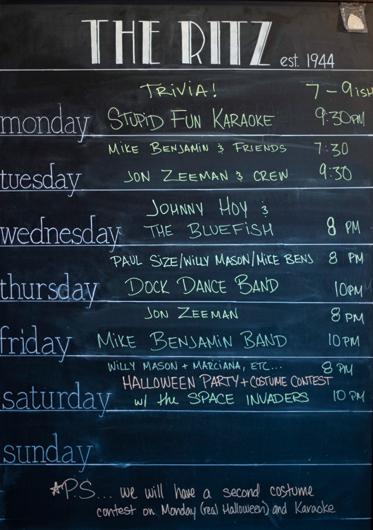 THE RITZ est. 1944
TRIVIA! 7-9ISH
monday STUPID FUN KARAOKE 9:30PM
MIKE BENJAMIN & FRIENDS 7:30
tuesday JON ZEEMAN & CREW 9:30
JOHNNY HOY &
wednesday THE BLUEFISH 8 PM
PAUL SIZE/WILLY MASON/MIKE BENJ 8 PM
thursday DOCK DANCE BAND 10PM
JON ZEEMAN 8PM
friday MIKE BENJAMIN BAND 10PM
WILLY MASON + MARCIANA, ETC... 8PM
HALLOWEEN PARTY + COSTUME CONTEST
saturday w/ the SPACE INVADERS 10 PM
sunday
*P.S... we will have a second costume
contest on Monday (real Halloween) and Karaoke